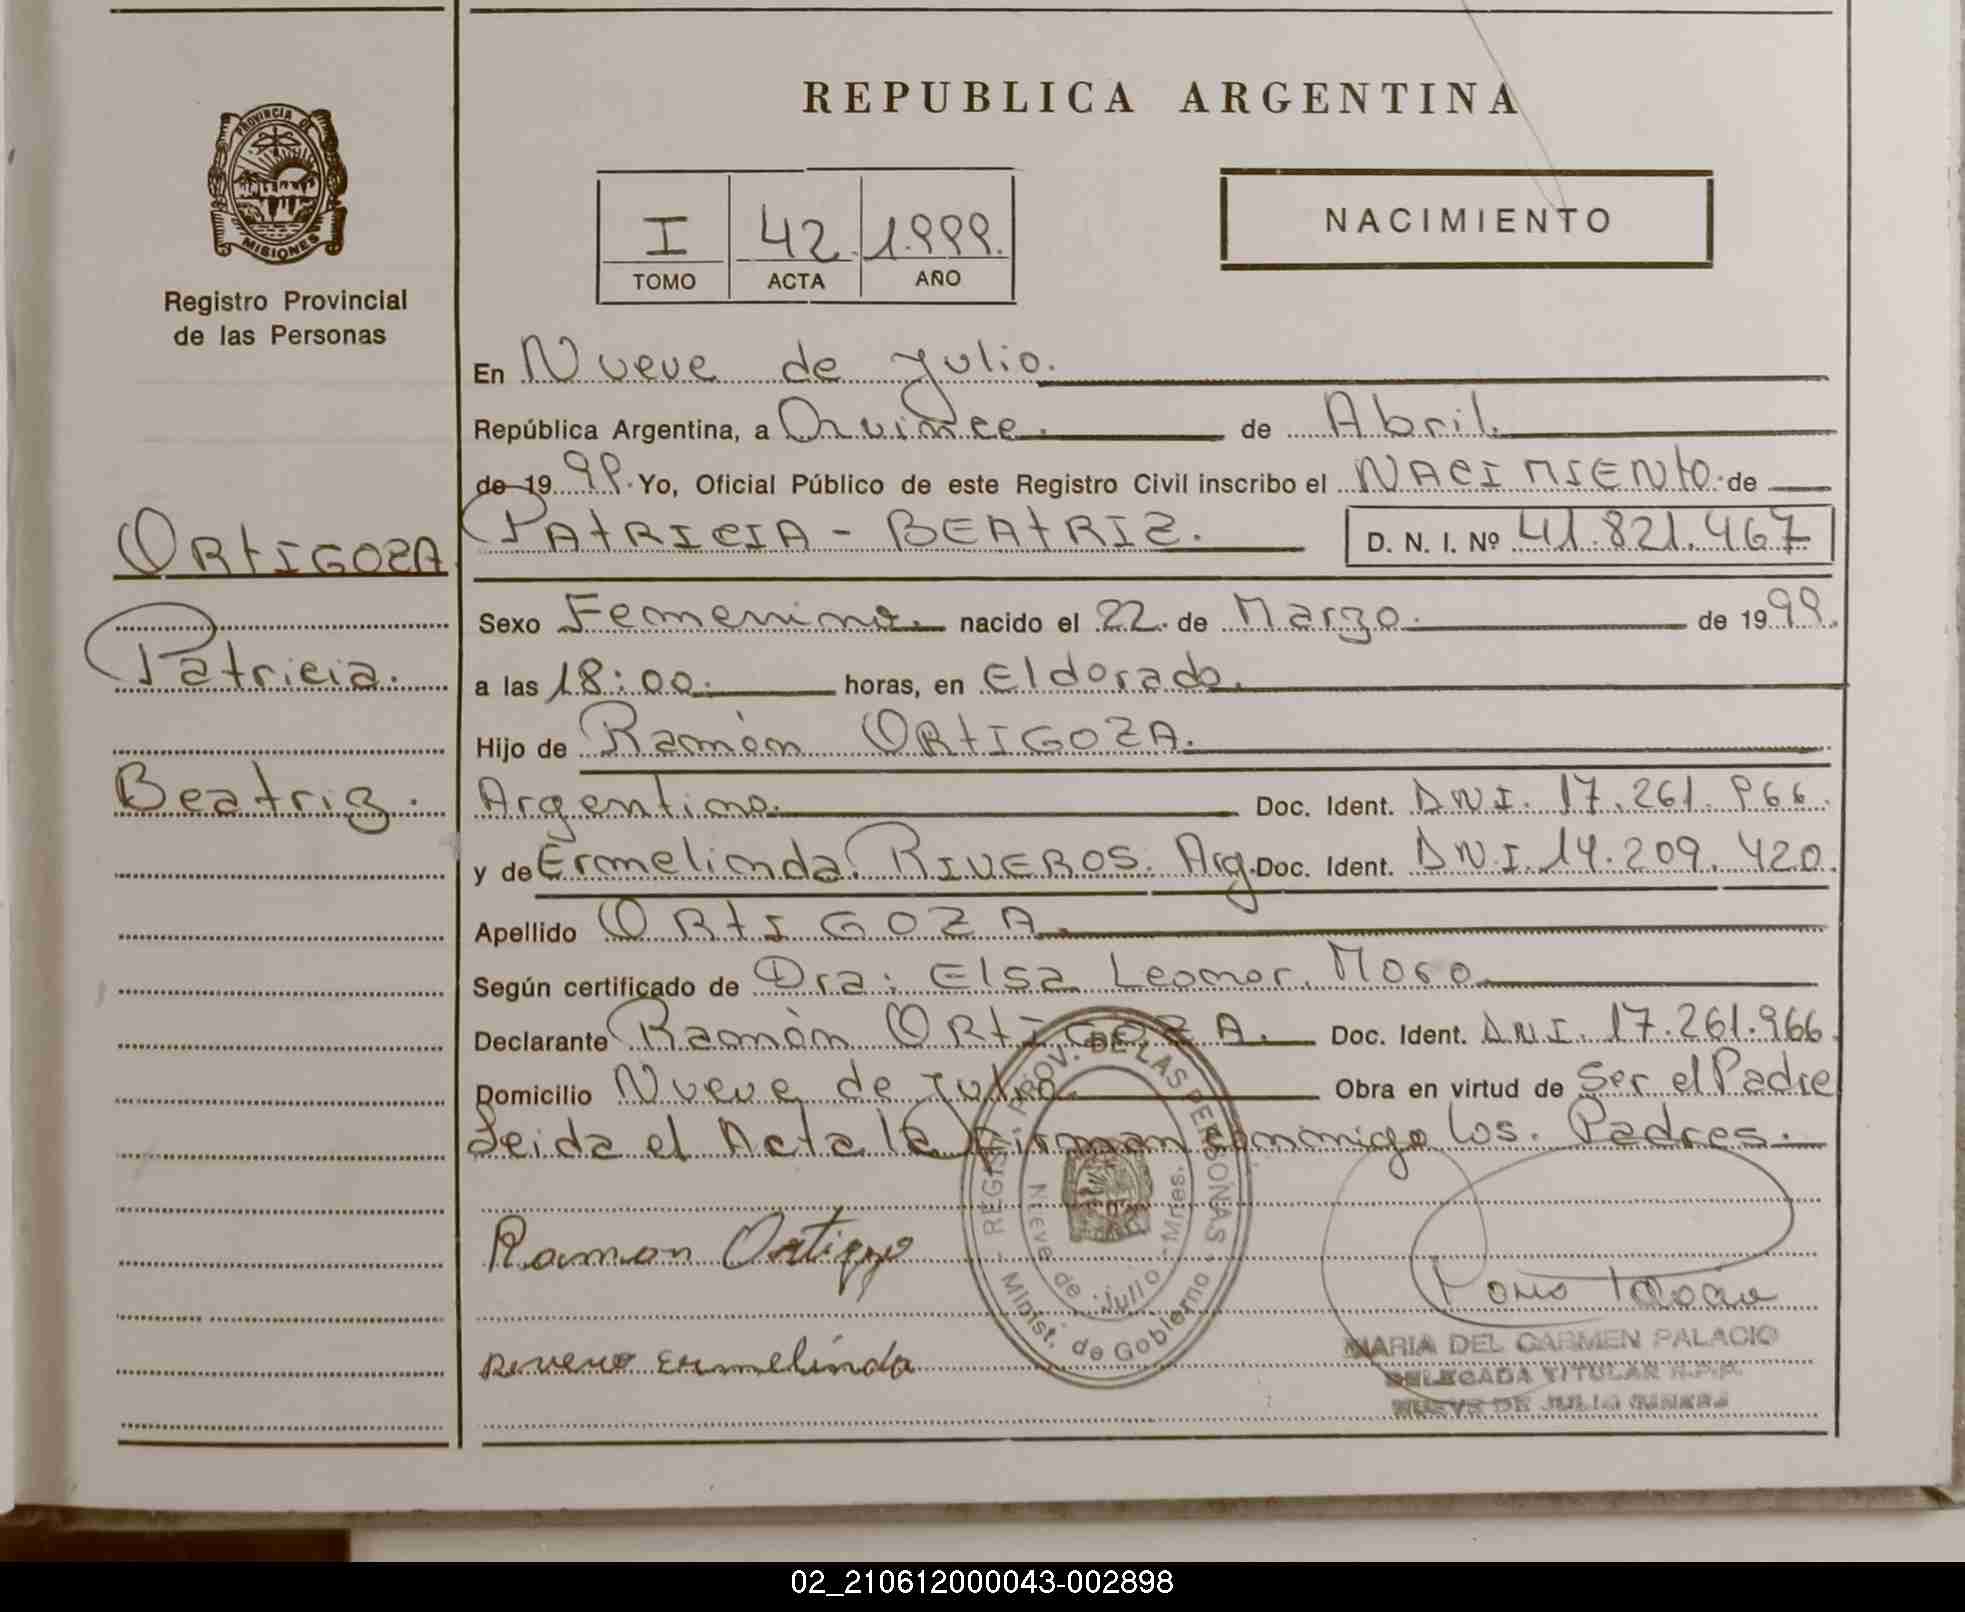 PROVINCIA DE
MISIONES
Registro Provincial
de las Personas
ORtIGOZA
Patricia.
Beatriz.
REPUBLICA ARGENTINA
I 42. 1.999.
TOMO ACTA AÑO
NACIMIENTO
En Nueve de Julio.
República Argentina, a Quince. de Abril.
de 19 99. Yo, Oficial Público de este Registro Civil inscribo el NACIMIENtO. de
PAtRICIA - BEAtRIZ. D. N. I. Nº 41.821.467
Sexo Femenino. nacido el 22. de Marzo. de 19 99.
a las 18:00. horas, en Eldorado.
Hijo de Ramón ORtIGOZA.
Argentino. Doc. Ident. DNI. 17.261.966.
y de Ermelinda. RIVEROS. Arg. Doc. Ident. DN.I. 14.209.420.
Apellido ORtIGOZA.
Según certificado de Dra: Elsa Leonor. Moro
Declarante Ramón ORtIGOZA. Doc. Ident. DNI. 17.261.966.
Domicilio Nueve de Julio. Obra en virtud de Ser el Padre
Leida el Acta la firman conmigo los. Padres.
REGIST. PROV. DE LAS PERSONAS
Nueve de Julio - Mnes.
Minist. de Gobierno
Ramon Ortigoza
Ermelinda
MARIA DEL CARMEN PALACIO
DELEGADA TITULAR R.P.P.
NUEVE DE JULIO
02_210612000043-002898